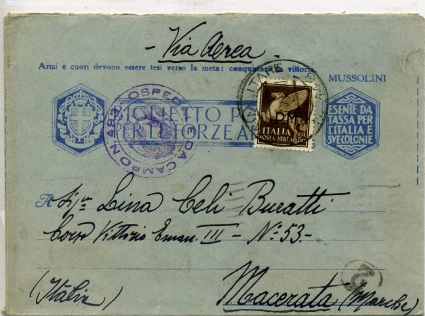 Via Aerea
Armi e cuori devono essere tesi verso la meta: conquistare la vittoria.
MUSSOLINI
BIGLIETTO P
PER LE FORZE AR
ESENTE DA
TASSA PER
L'ITALIA E
SVE COLONIE
OSPEDALE DA CAMPO N. 493
P.M.
ITALIA
POSTA AEREA
A Sig.ra Lina Celi Buratti
Corso Vittorio Eman. III - N.° 53-
Macerata (Marche)
(Italia)